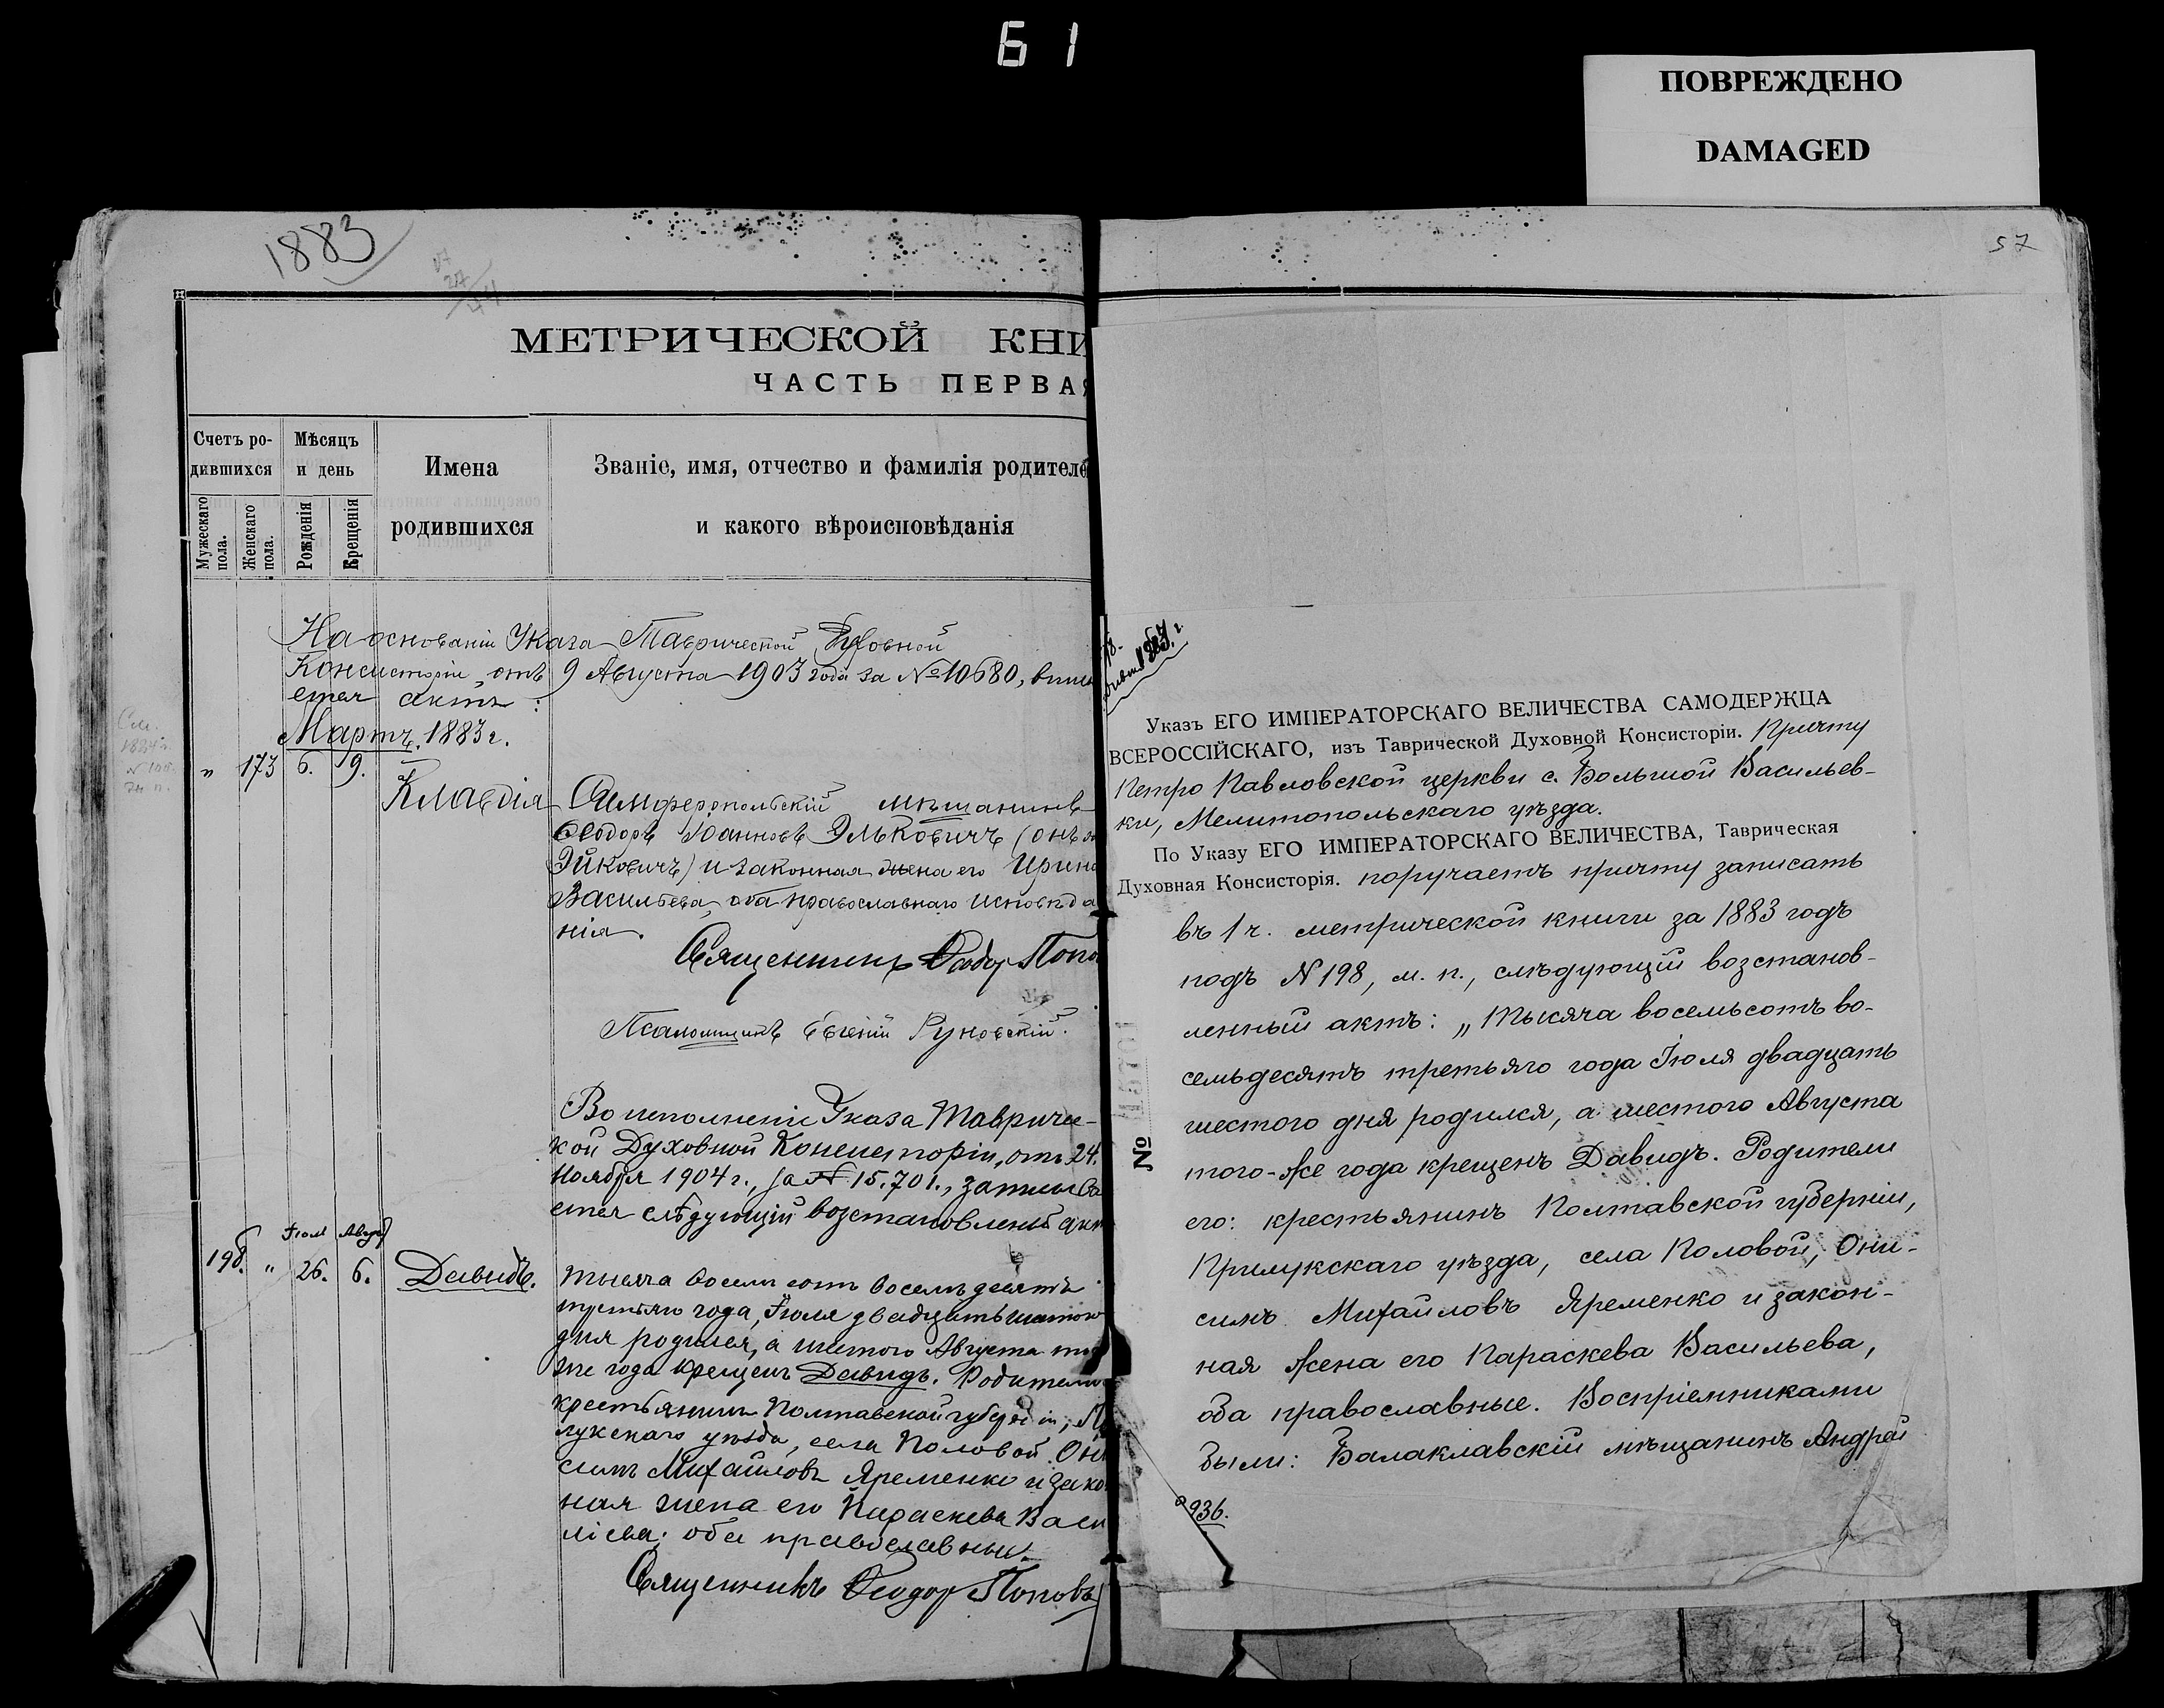 61
ПОВРЕЖДЕНО
DAMAGED
1883
МЕТРИЧЕСКОЙ КНИ
ЧАСТЬ ПЕРВАЯ
Счетъ ро-
дившихся
Мѣсяцъ
и день
Имена
родившихся
Званіе, имя, отчество и фамилія родителе
и какого вѣроисповѣданія
Мужескаго
пола.
Женскаго
пола.
Рожденія
Крещенія
На основаніи Указа Таврической Духовной
Консисторіи отъ 9 Августа 1903 года за №10680, впи
ется актъ:
Мартъ. 1883 г.
" 173 6. 9.
Клавдія Симферопольскій мѣщанинъ
Ѳеодоръ Іоанновъ Эльковичъ (онъ
Эйковичъ) и законная жена его Ирина
Васильева, оба православнаго исповѣда
нія.
Священникъ Ѳеодор Попо
Псаломщикъ Евгеній Руновскій.
Во исполненіе Указа Тавричес-
кой Духовной Консисторіи, отъ 24.
Ноября 1904 г., за № 15.701., записыва
ется слѣдующій возстановленый акт
Іюл Авгус
198. " 26. 6. Давидъ.
тысяча восемь сотъ восемьдесятъ
третьяго года, Іюля двадцать шестого
дня родился, а шестого Августа то
же года крещенъ Давидъ. Родители
крестьянинъ Полтавской губерніи, П
лукскаго уѣзда, села Половой Они
симъ Михайловъ Яременко и зако
ная жена его Параскева Васи
ліева; оба православные.
Священникъ Ѳеодор Поповъ
57
Указъ ЕГО ИМПЕРАТОРСКАГО ВЕЛИЧЕСТВА САМОДЕРЖЦА
ВСЕРОССІЙСКАГО, изъ Таврической Духовной Консисторіи. Причту
Петро Павловской церкви с. Большой Васильев-
ки, Мелитопольскаго уѣзда.
По Указу ЕГО ИМПЕРАТОРСКАГО ВЕЛИЧЕСТВА, Таврическая
Духовная Консисторія. поручаетъ причту записать
въ 1 ч. метрической книги за 1883 годъ
подъ N 198, м. п., слѣдующій возстанов-
ленный актъ: „Тысяча восемьсотъ во-
семьдесятъ третьяго года Іюля двадцать
шестого дня родился, а шестого Августа
того-же года крещенъ Давидъ. Родители
его: крестьянинъ Полтавской губерніи,
Прилукскаго уѣзда, села Половой, Они-
симъ Михайловъ Яременко и закон-
ная жена его Параскева Васильева,
оба православные. Воспріемниками
были: Балаклавскій мѣщанинъ Андрей
№
936.